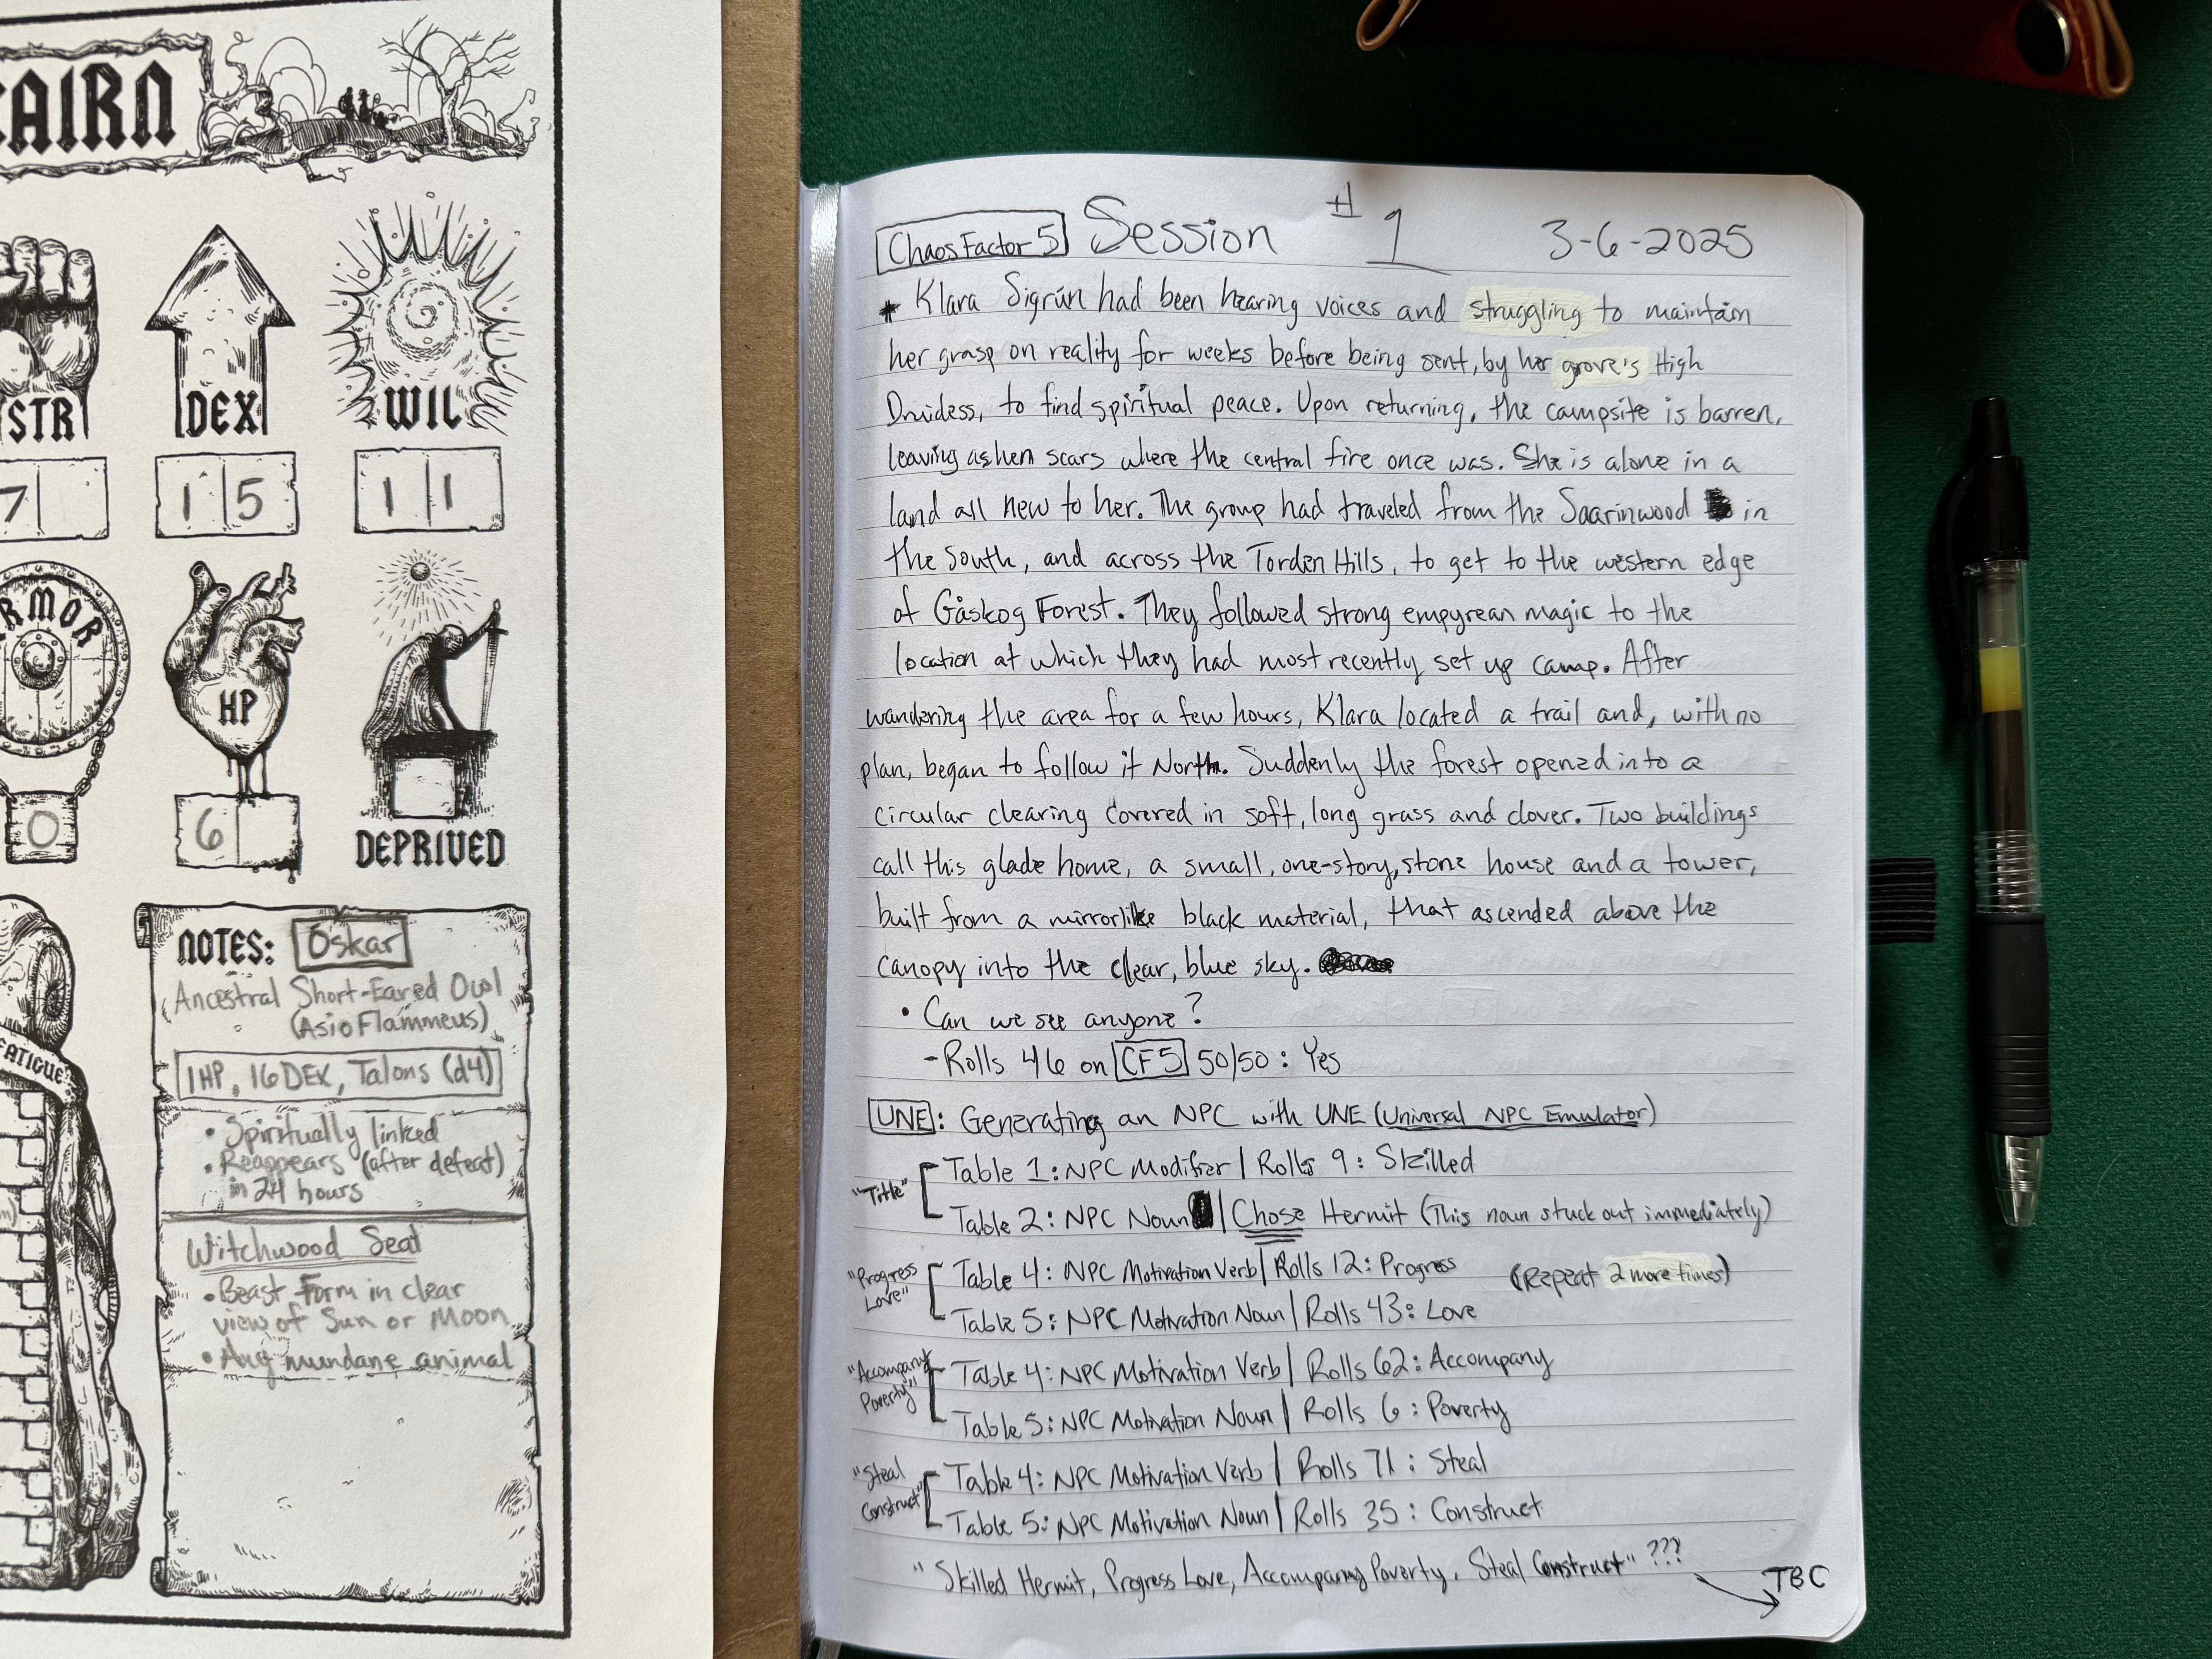 CAIRN
STR
DEX
WIL
7
1 5
1 1
ARMOR
HP
0
6
DEPRIVED
FATIGUE
NOTES: Óskar
Ancestral Short-Eared Owl
(Asio Flammeus)
1HP, 16 DEX, Talons (d4)
• Spiritually linked
• Reappears (after defeat)
in 24 hours
Witchwood Seat
• Beast Form in clear
view of Sun or Moon
• Any mundane animal
Chaos Factor 5 Session #1 3-6-2025
* Klara Sigrún had been hearing voices and struggling to maintain
her grasp on reality for weeks before being sent, by her grove's High
Druidess, to find spiritual peace. Upon returning, the campsite is barren,
leaving ashen scars where the central fire once was. She is alone in a
land all new to her. The group had traveled from the Saarinwood in
the South, and across the Torden Hills, to get to the western edge
of Gåskog Forest. They followed strong empyrean magic to the
location at which they had most recently set up camp. After
wandering the area for a few hours, Klara located a trail and, with no
plan, began to follow it North. Suddenly the forest opened into a
circular clearing covered in soft, long grass and clover. Two buildings
call this glade home, a small, one-story, stone house and a tower,
built from a mirrorlike black material, that ascended above the
canopy into the clear, blue sky.
• Can we see anyone?
- Rolls 46 on CF5 50/50: Yes
UNE: Generating an NPC with UNE (Universal NPC Emulator)
"Title"
Table 1: NPC Modifier | Rolls 9: Skilled
Table 2: NPC Noun | Chose Hermit (This noun stuck out immediately)
"Progress
Love"
Table 4: NPC Motivation Verb | Rolls 12: Progress (Repeat 2 more times)
Table 5: NPC Motivation Noun | Rolls 43: Love
"Accompany
Poverty"
Table 4: NPC Motivation Verb | Rolls 62: Accompany
Table 5: NPC Motivation Noun | Rolls 6: Poverty
"Steal
Construct"
Table 4: NPC Motivation Verb | Rolls 71: Steal
Table 5: NPC Motivation Noun | Rolls 35: Construct
"Skilled Hermit, Progress Love, Accompany Poverty, Steal Construct" ???
TBC